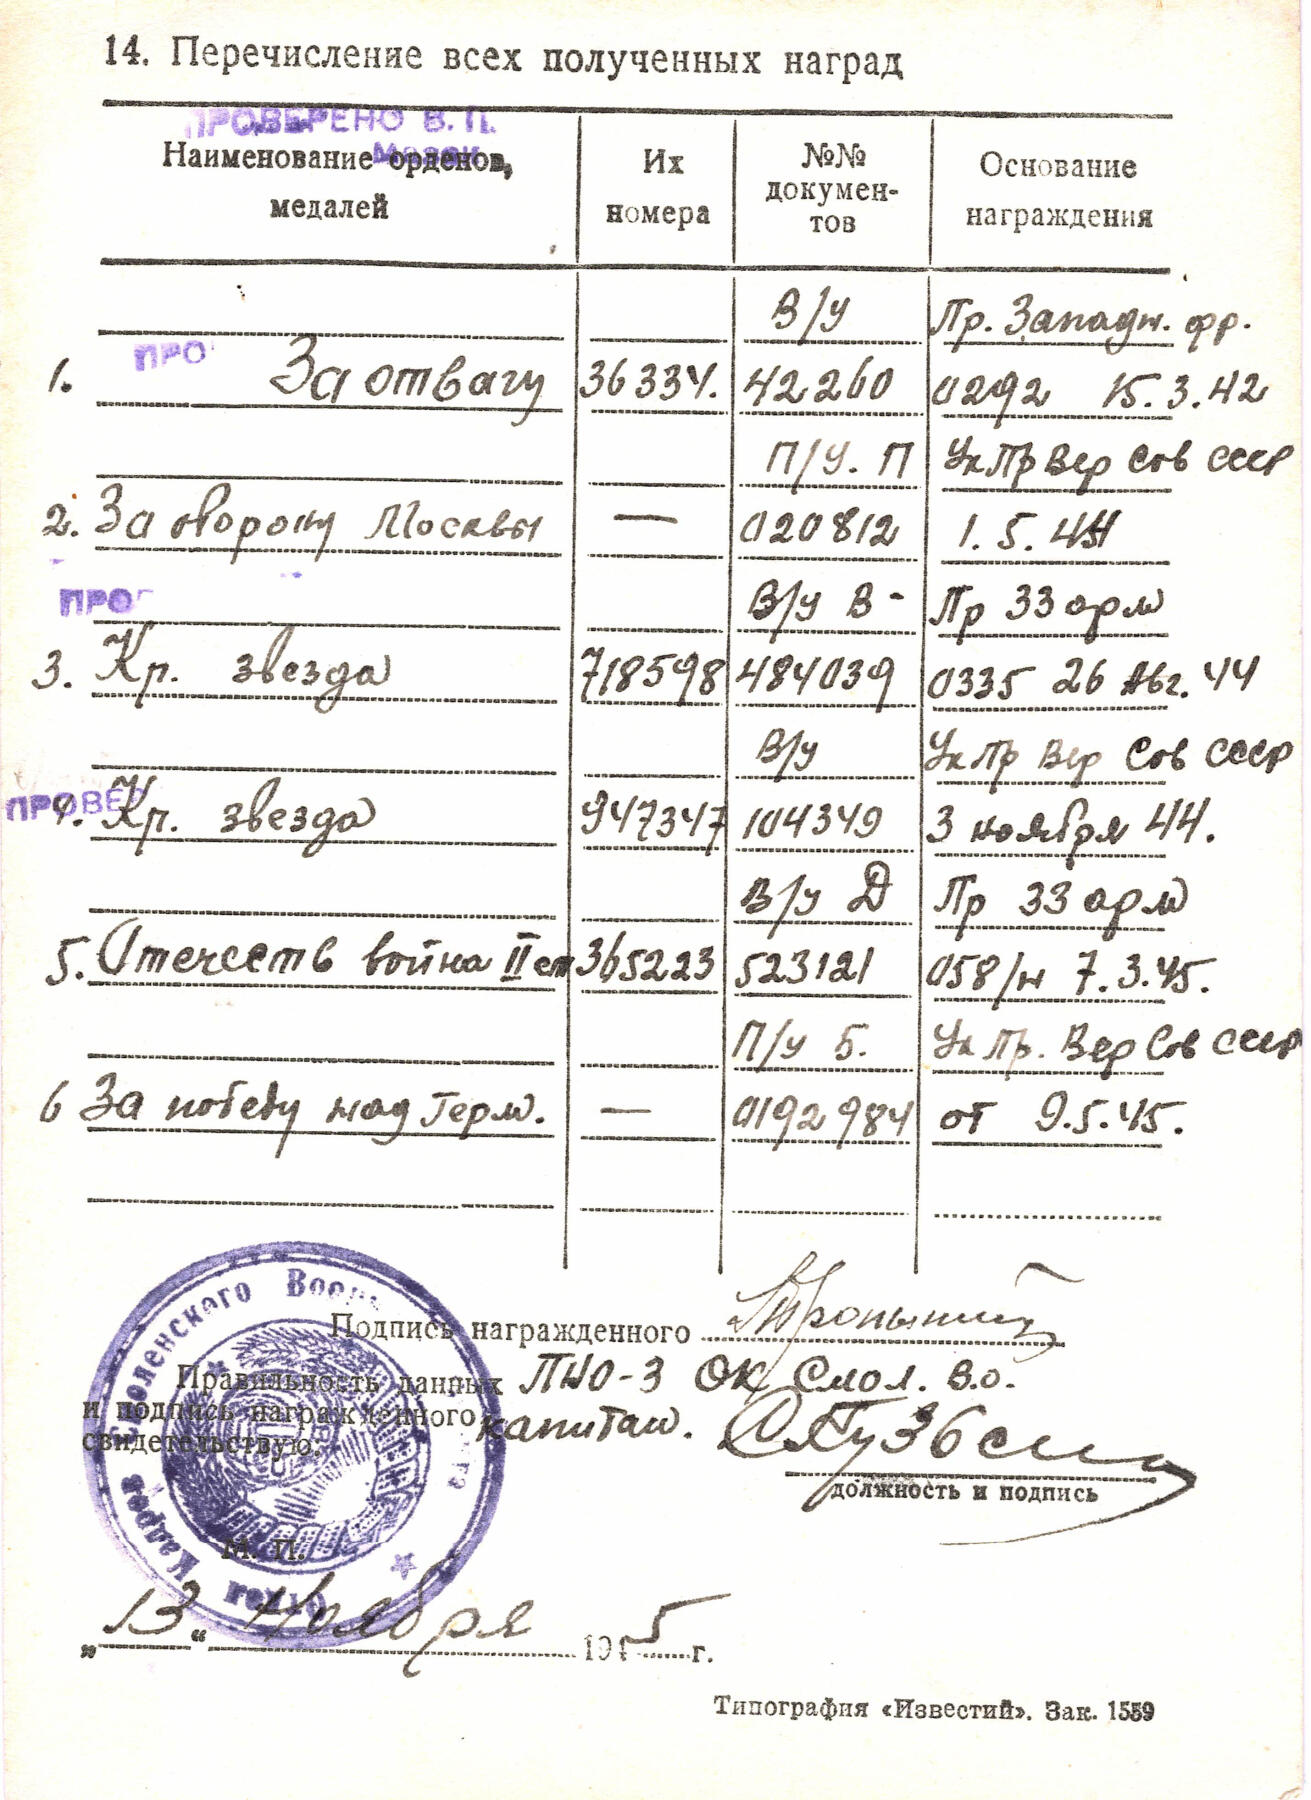 14. Перечисление всех полученных наград
ПРОВЕРЕНО В. П.
Наименование орденов,
медалей
Их
номера
№№
докумен-
тов
Основание
награждения
В/у Пр. Западн. фр.
ПРО
1. За отвагу 36334. 42260 0292 15.3.42
П/у. П Ук Пр Вер Сов СССР
2. За оборону Москвы — 020812 1.5.44
ПРО
В/у В- Пр 33 арм
3. Кр. звезда 718598 484039 0335 26 Авг. 44
В/у Ук Пр Вер Сов СССР
ПРОВЕР
4. Кр. звезда 947347 104349 3 ноября 44.
В/у Д Пр 33 арм
5. Отечеств война II ст 365223 523121 058/н 7.3.45.
П/у Б. Ук Пр. Вер Сов СССР
6 За победу над Герм. — 0192984 от 9.5.45.
Смоленского Воен
Отдел Кадров
Подпись награжденного
Правильность данных
и подпись награжденного
свидетельствую.
ПНО-3 ОК Смол. В.О.
капитан.
должность и подпись
М. П.
„13“ Ноября 1945 г.
Типография «Известий». Зак. 1559